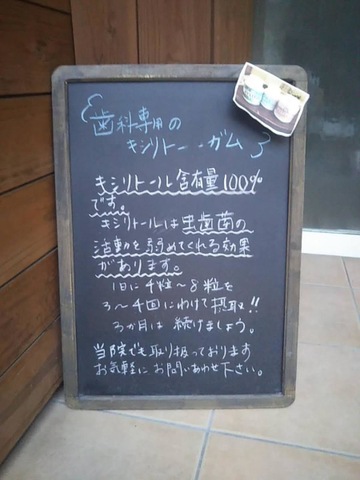 歯科専用の
キシリトールガム
キシリトール含有量100%
です。
キシリトールは虫歯菌の
活動を弱めてくれる効果
があります。
1日に4粒〜8粒を
3〜4回にわけて摂取!!
3か月は続けましょう。
当院でも取り扱っております
お気軽にお問いあわせ下さい。